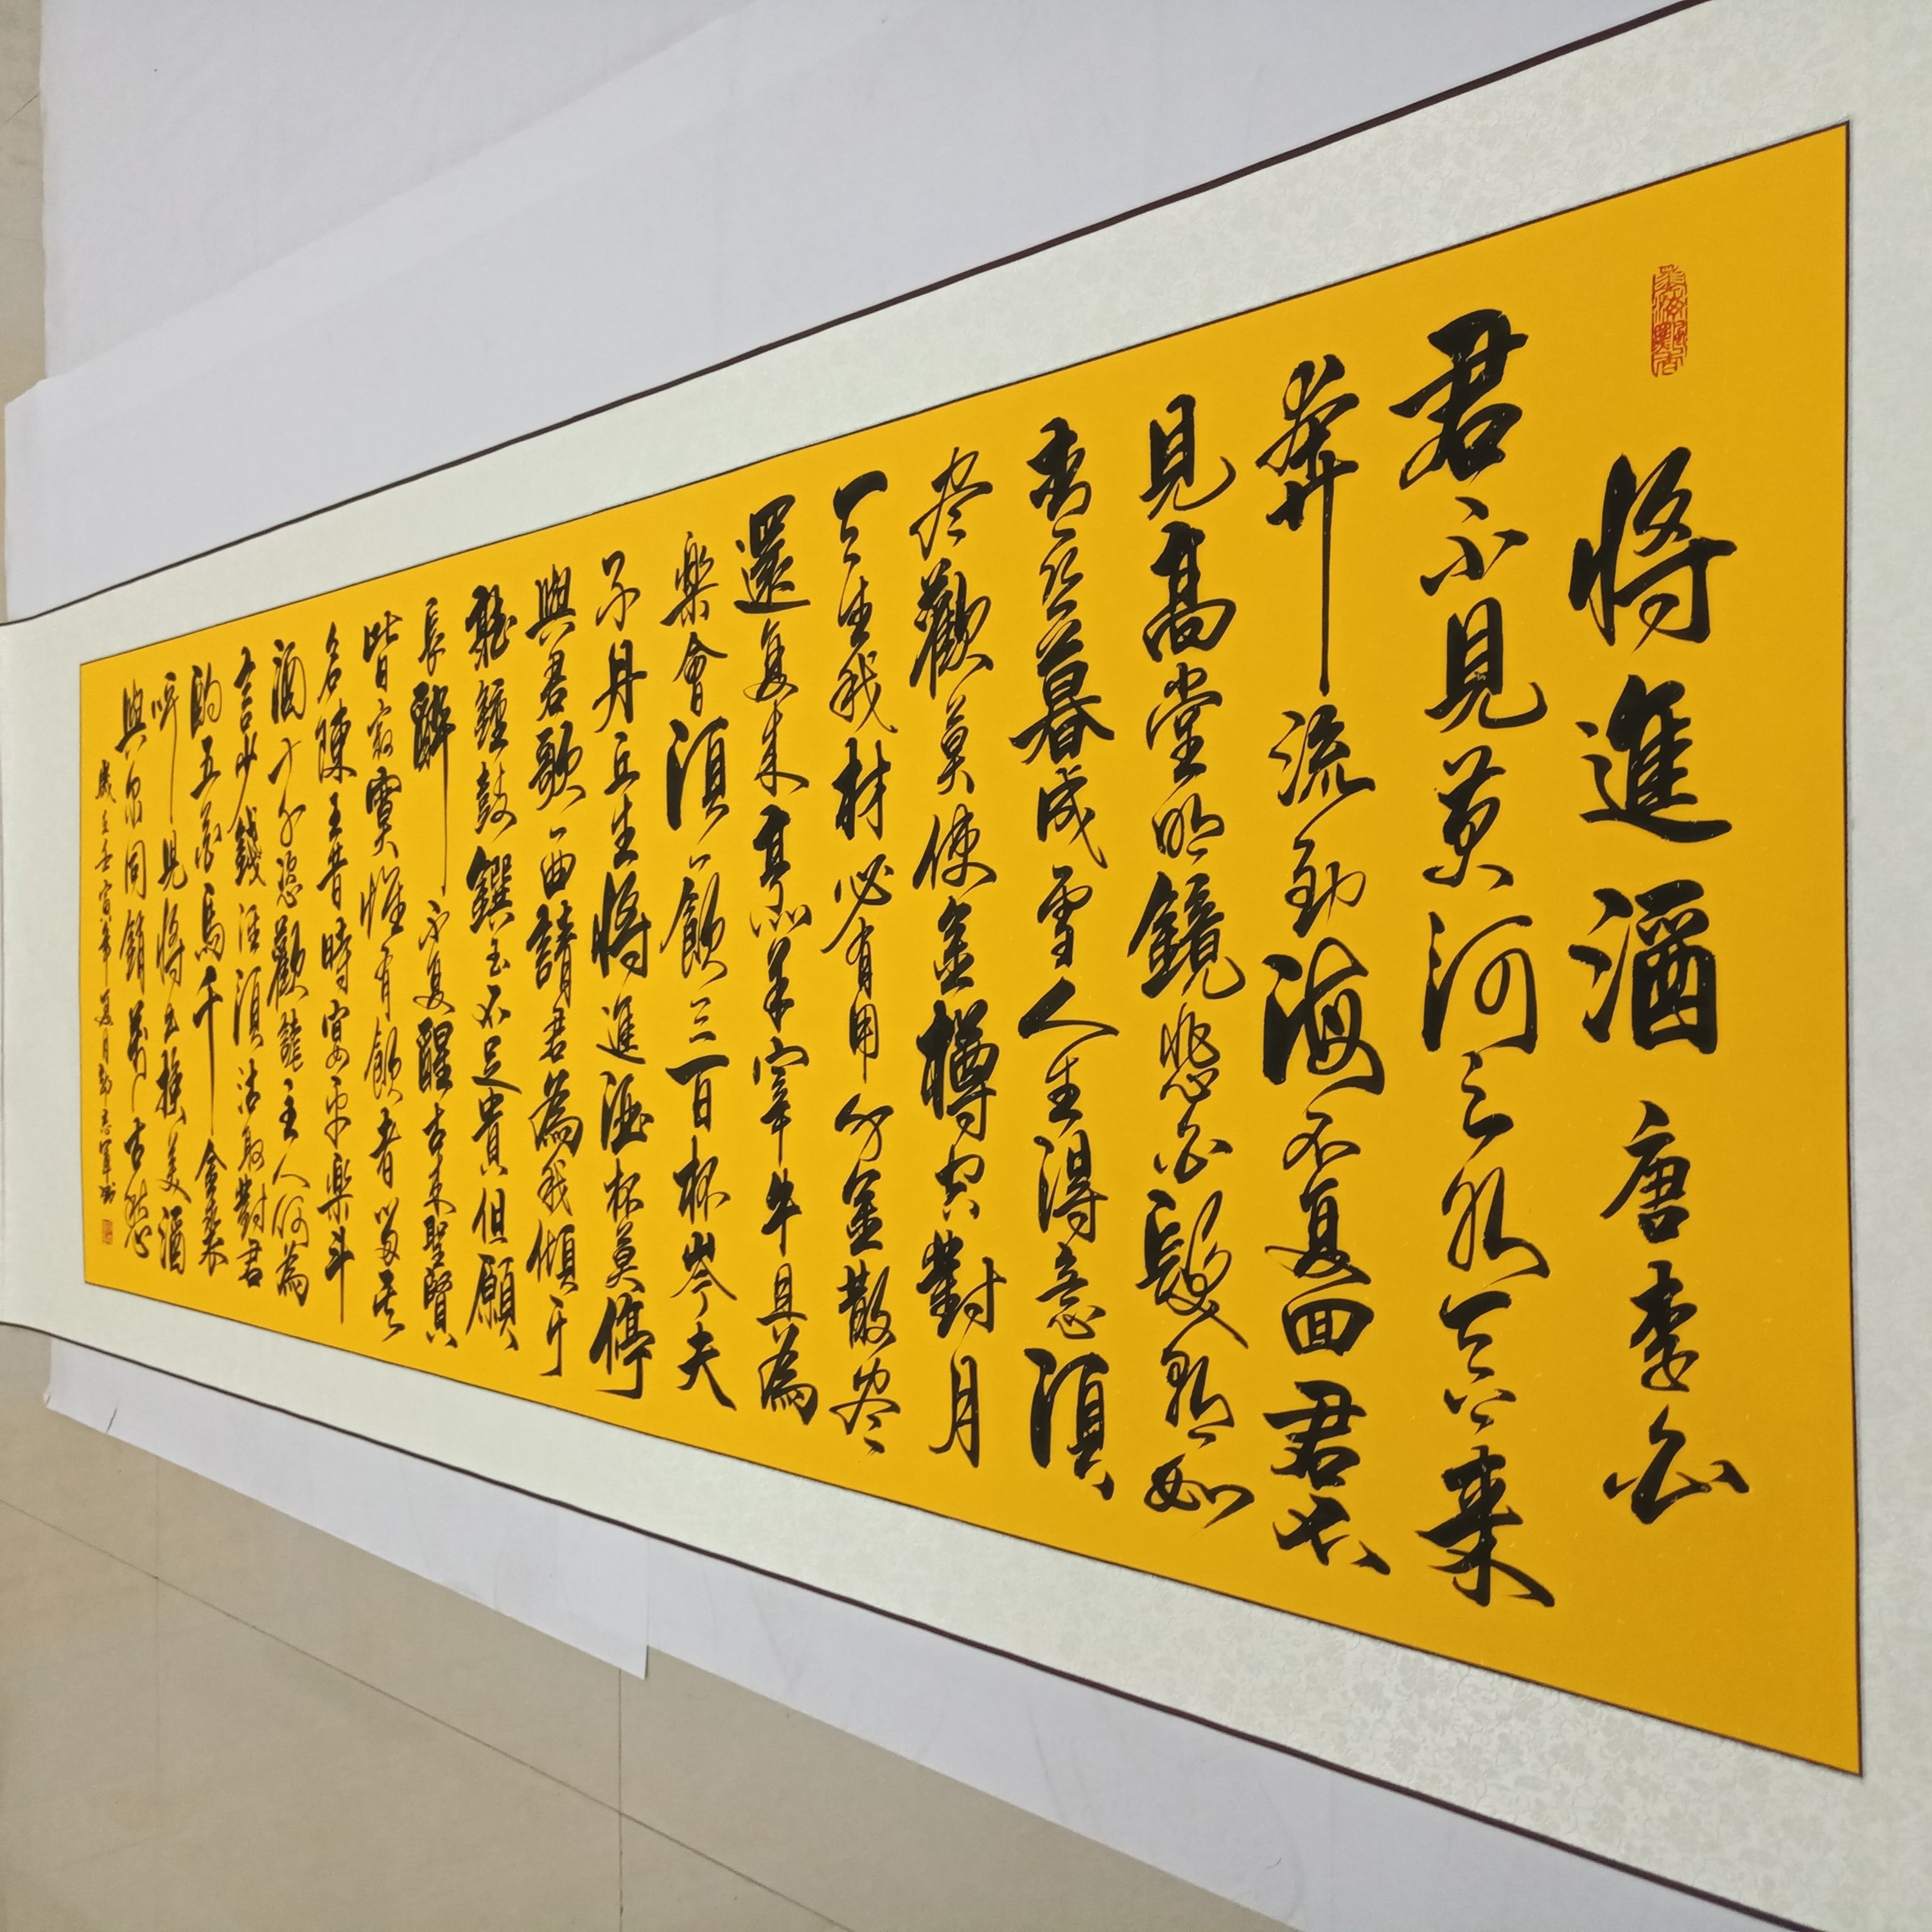 將進酒 唐 李白
君不見黄河之水天上来
奔流到海不复回君不
見高堂明鏡悲白髮朝如
青丝暮成雪人生得意須
尽歡莫使金樽空對月
天生我材必有用千金散尽
還复来烹羊宰牛且為
楽會須一飲三百杯岑夫
子丹丘生將進酒杯莫停
與君歌一曲請君為我傾耳
聽鐘鼓饌玉不足貴但願
長醉不复醒古来聖賢
皆寂寞惟有飲者留其
名陳王昔時宴平楽斗
酒十千恣歡謔主人何為
言少錢徑須沽取對君
酌五花馬千金裘
呼兒將出換美酒
與尔同銷萬古愁
歲在壬寅年夏月志軍书